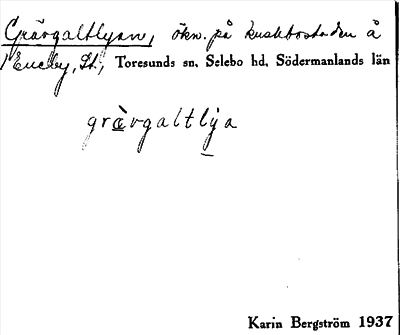 Grävgaltlyan, ökn. på kuskbostaden å
Eneby, St., Toresunds sn, Selebo hd, Södermanlands län
grävgaltlya
Karin Bergström 1937